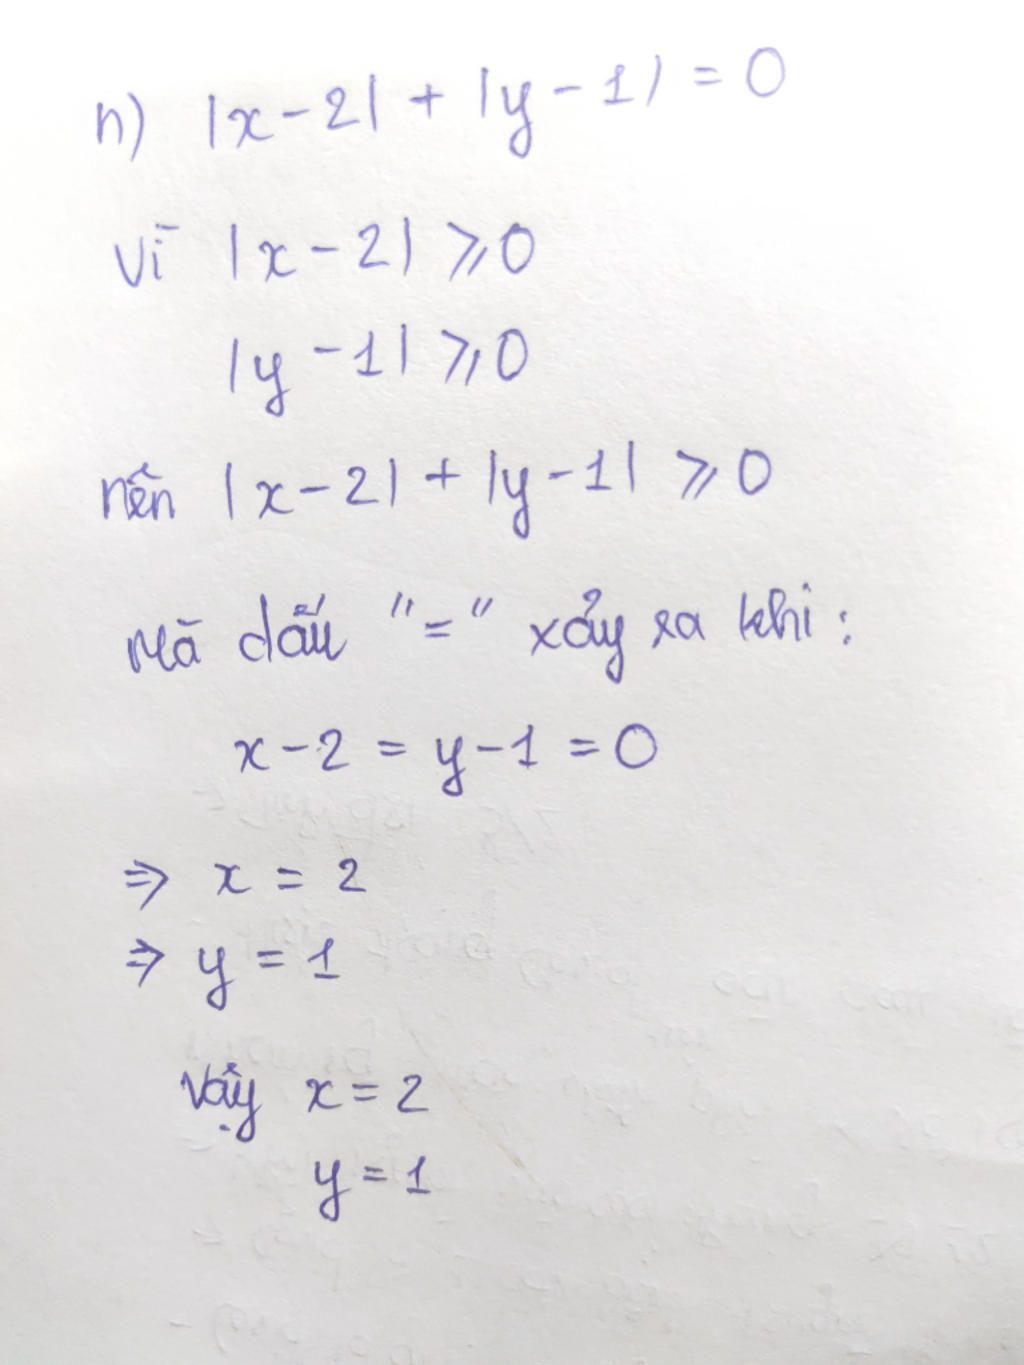 n) |x-2| + |y-1| = 0
Vì |x-2| ⩾ 0
|y-1| ⩾ 0
nên |x-2| + |y-1| ⩾ 0
Mà dấu "=" xảy ra khi:
x-2 = y-1 = 0
⇒ x = 2
⇒ y = 1
Vậy x = 2
y = 1